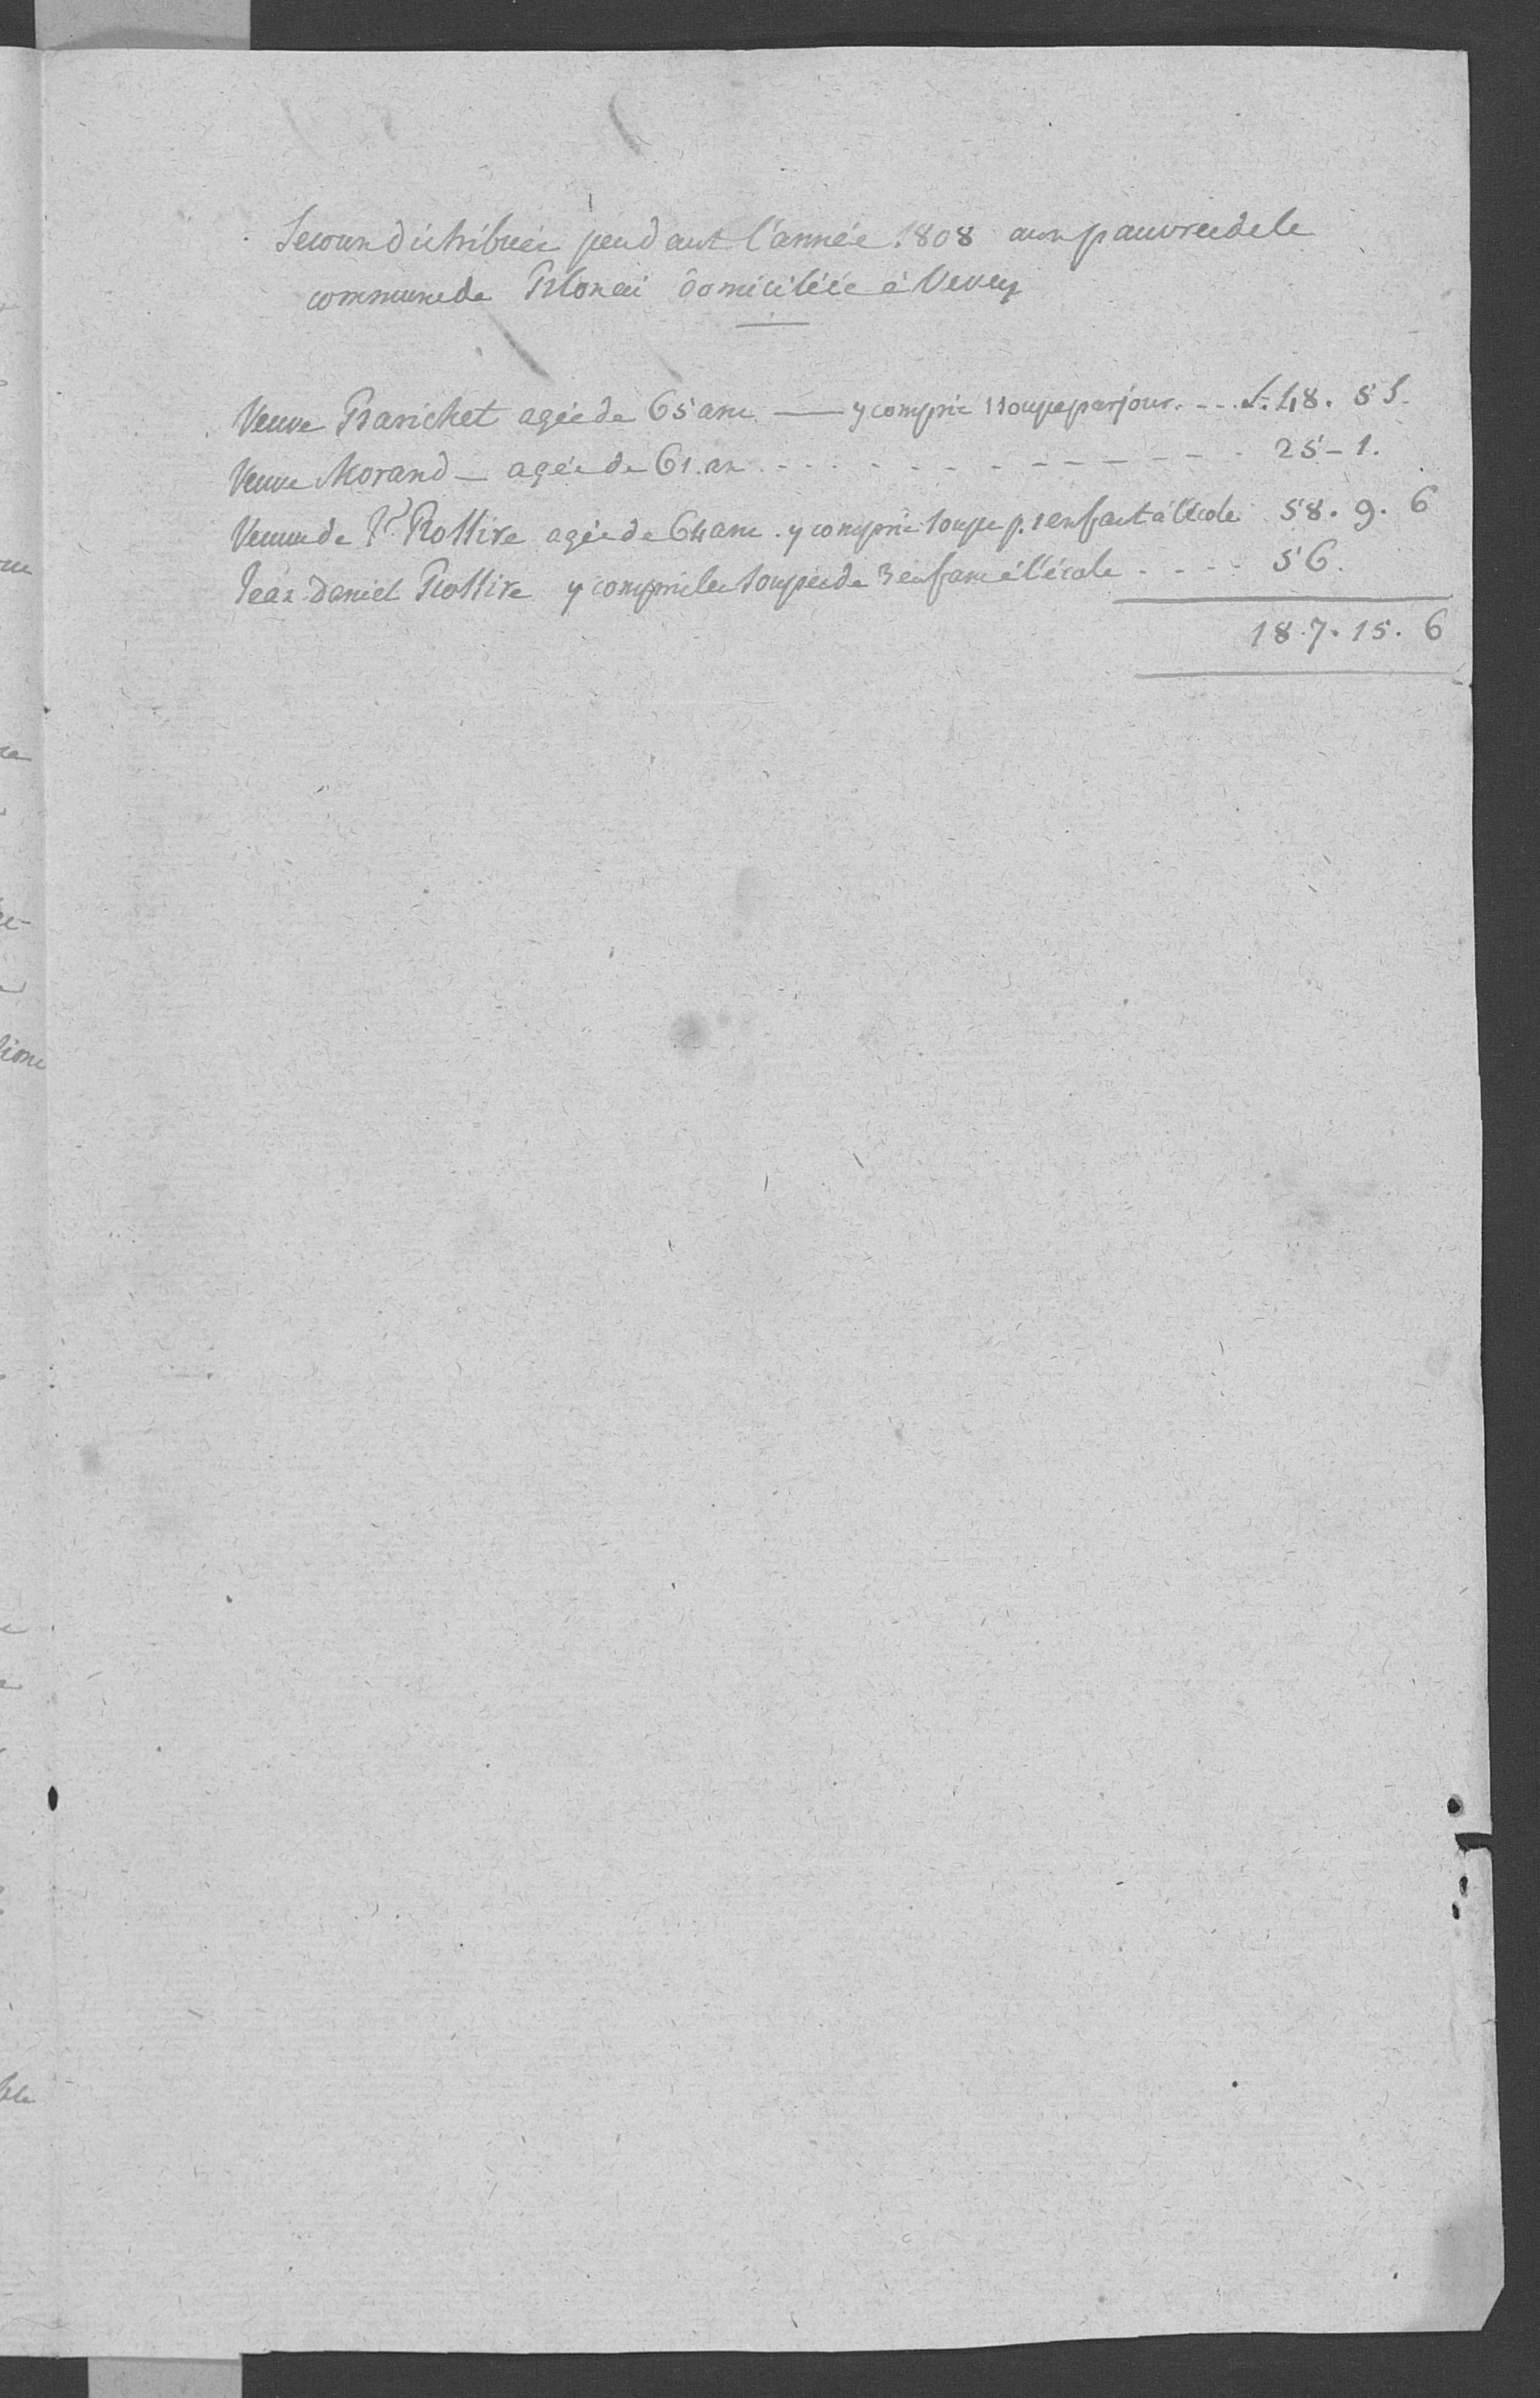 Secours distribués pendant l'année 1808 aux pauvres de la
commune de Blonai domiciliés à Vevey
Veuve Barichet agée de 65 ans — y compris 1 soupe par jour. - - . L. 48. 5 S.
Veuve Morand — agée de 61. ans . - - - - - - - - - - - - - 25 - 1.
Veuve de Rossire agée de 64 ans. y compris soupe p. 1 enfant à l'école 58. 9. 6
Jean Daniel Rossire y compris les soupes de 3 enfans à l'école - - - - 56.
18.7. 15. 6